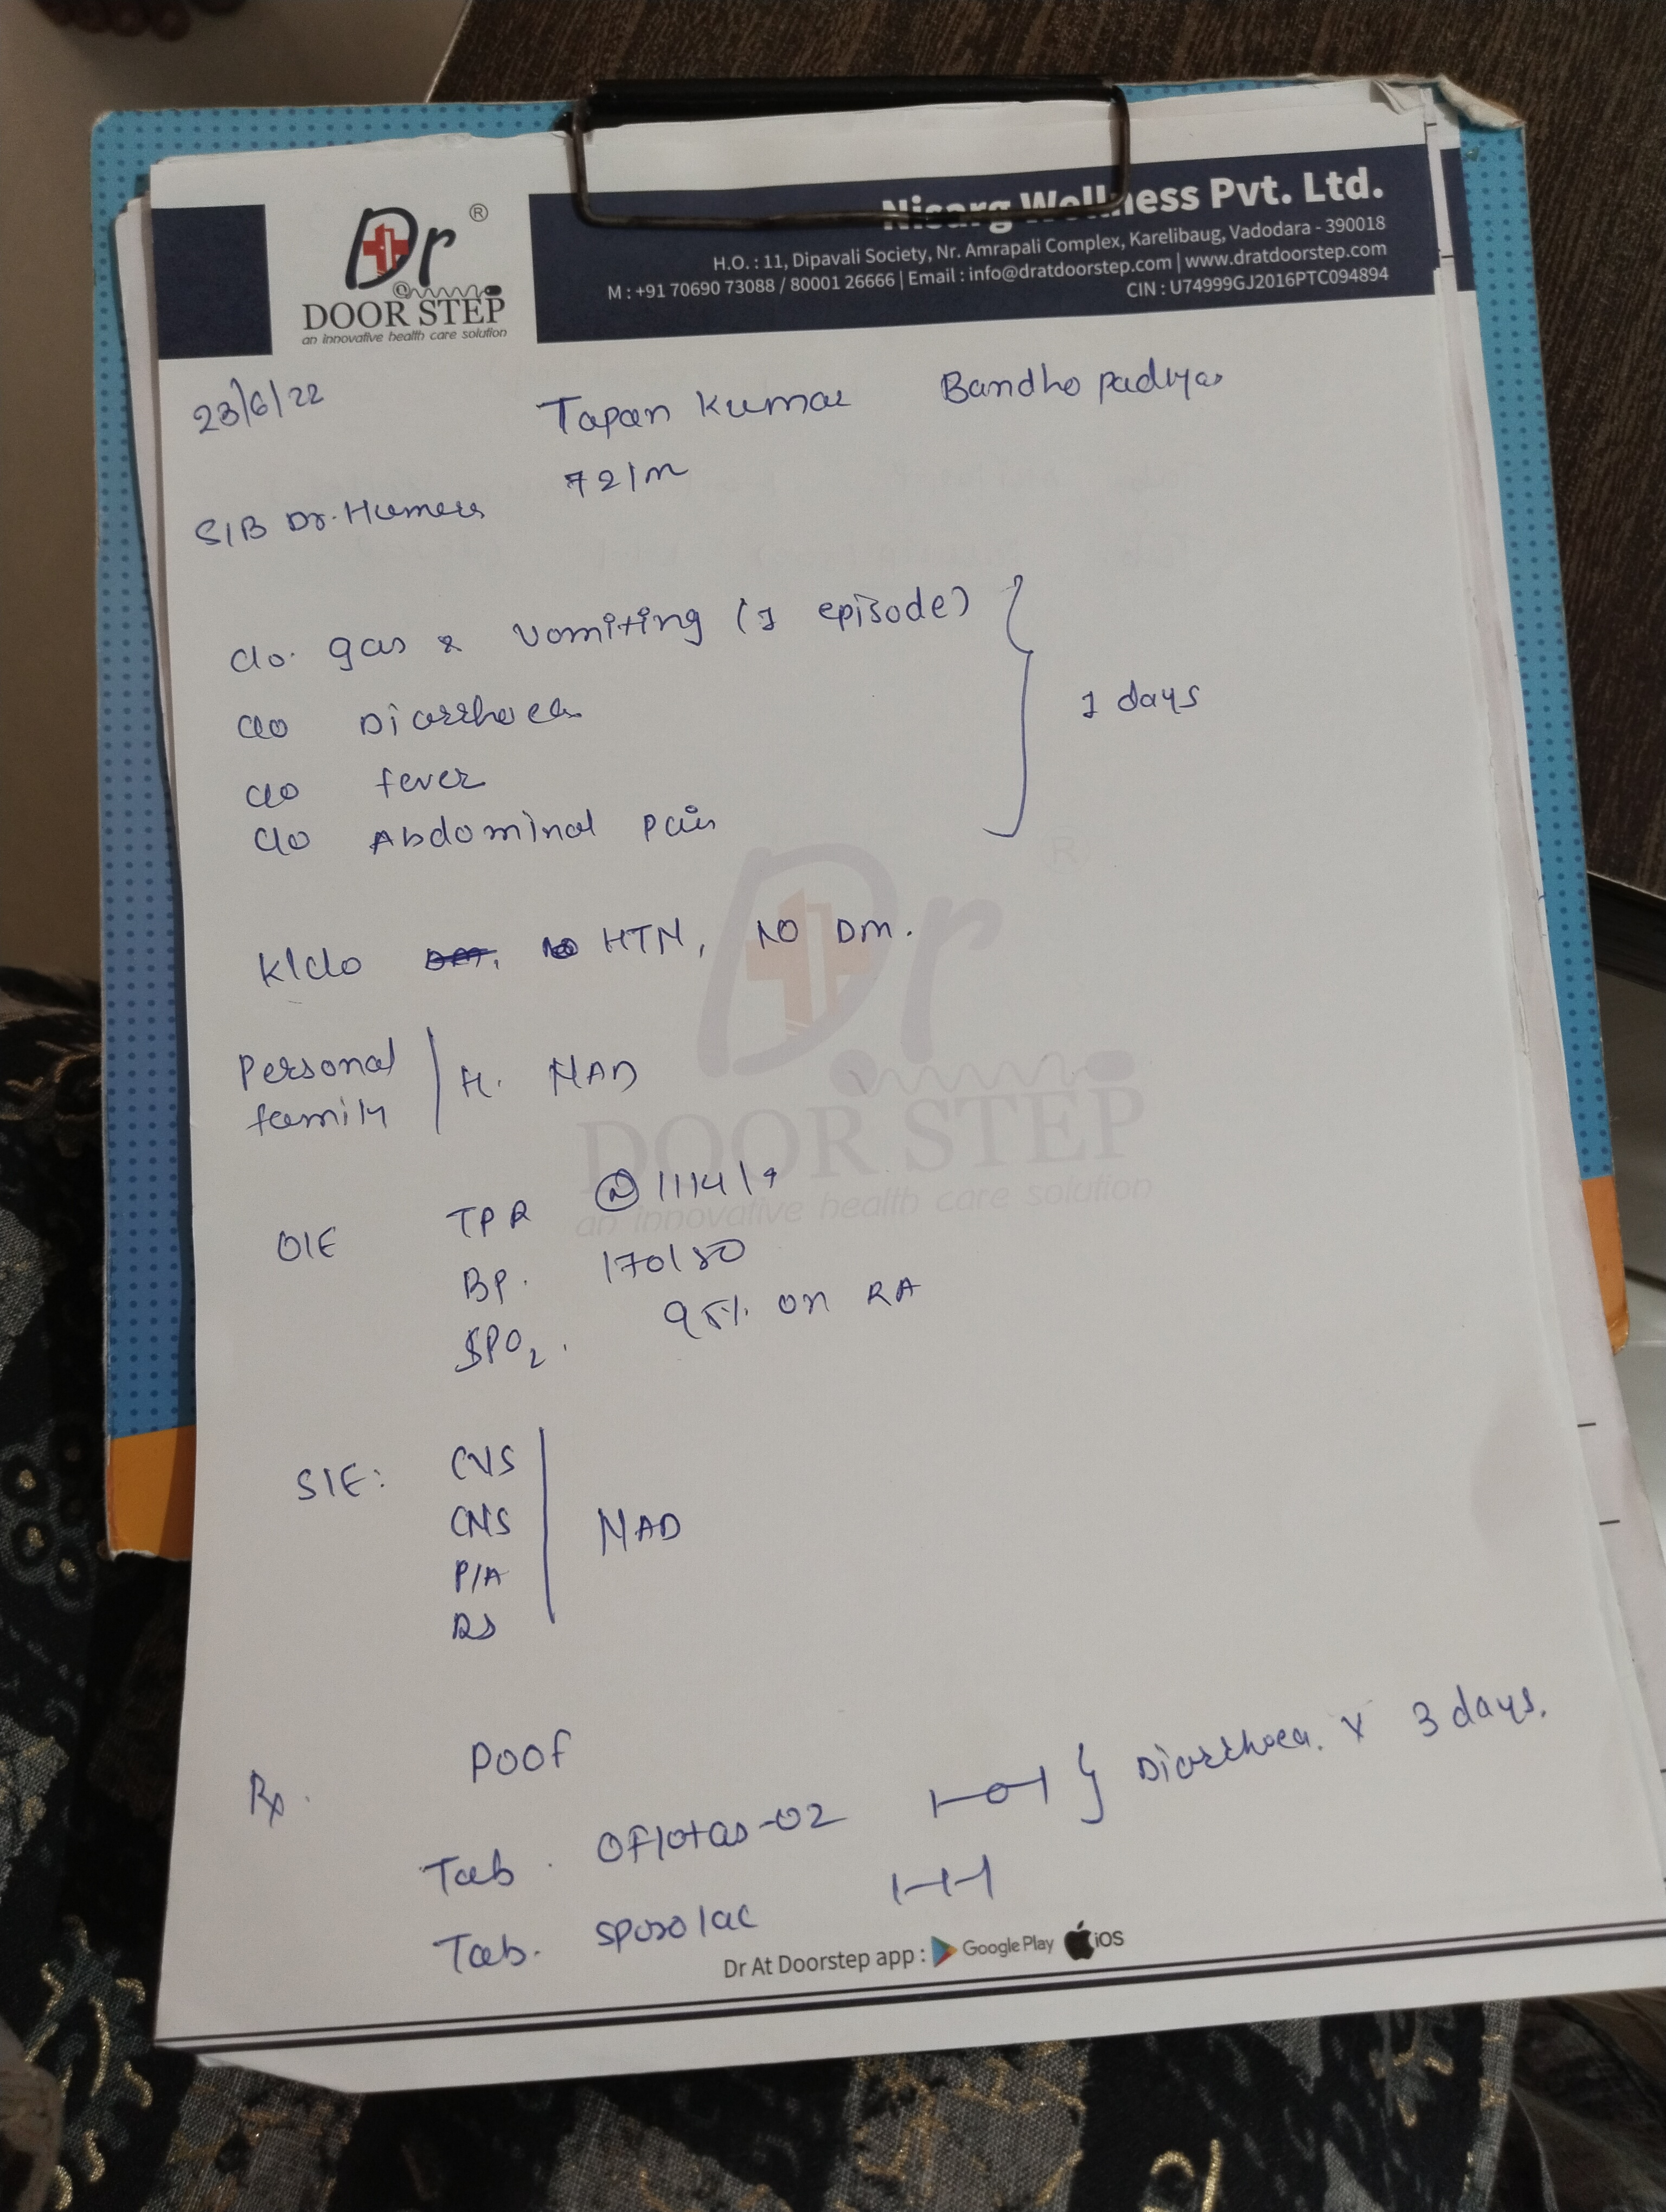 Dr ®
DOOR STEP
an innovative health care solution
Nisarg Wellness Pvt. Ltd.
H.O. : 11, Dipavali Society, Nr. Amrapali Complex, Karelibaug, Vadodara - 390018
M : +91 70690 73088 / 80001 26666 | Email : info@dratdoorstep.com | www.dratdoorstep.com
CIN : U74999GJ2016PTC094894
23/6/22
Tapan Kumar Bandhopadyay
72/m
S/B Dr.
c/o. gas & vomiting (1 episode)
c/o Diarrhoea
1 days
c/o fever
c/o Abdominal pain
K/c/o HTN, NO DM.
Personal
family
H. NAD
O/E TPR 114/
BP. 170/80
SPO2. 95% on RA
S/E: CVS
CNS
NAD
P/A
RS
Rx.
Poof
Tab. Oflotas-O2 1-0-1 } Diarrhoea. x 3 days.
Tab. sporolac 1-1-1
Dr At Doorstep app : Google Play iOS
Dr R
DOOR STEP
an innovative health care solution